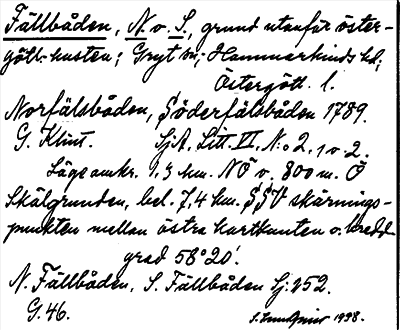 Fällbåden, N. v. S., grund utanför öster-
götl. kusten; Gryt sn; Hammarkinds hd;
Östergötl. l.
Norfälsbåden, Söderfälsbåden 1789.
G. Klint. SjA. Litt. II. N:o 2, 1 o. 2.
Läge omkr. 1,3 km. NÖ o. 800 m. Ö
Skälgrunden, bel. 7,4 km. SSV skärnings-
punkten mellan östra kartkanten o. bredd
grad 58°20'.
N. Fällbåden, S. Fällbåden Sj: 152.
G. 46.
1938.